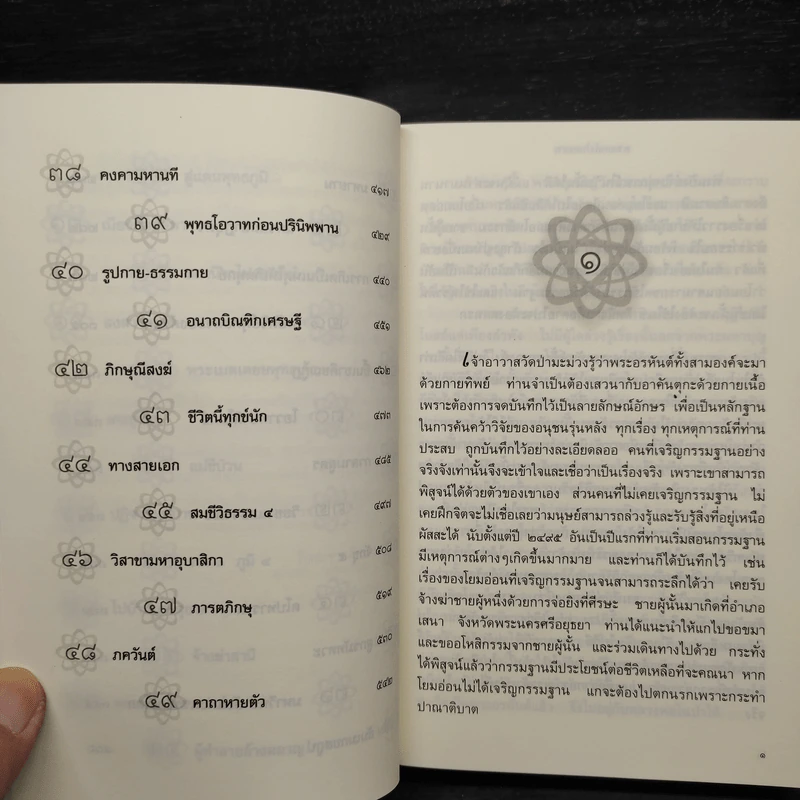 ๓๘ คงคามหานที ๔๑๗
๓๙ พุทธโอวาทก่อนปรินิพพาน ๔๒๙
๔๐ รูปกาย-ธรรมกาย ๔๔๐
๔๑ อนาถบิณฑิกเศรษฐี ๔๕๑
๔๒ ภิกษุณีสงฆ์ ๔๖๒
๔๓ ชีวิตนี้ทุกข์นัก ๔๗๓
๔๔ ทางสายเอก ๔๘๕
๔๕ สมชีวิธรรม ๔ ๔๙๗
๔๖ วิสาขามหาอุบาสิกา ๕๐๘
๔๗ ภารตภิกษุ ๕๑๙
๔๘ ภควันต์ ๕๓๐
๔๙ คาถาหายตัว ๕๔๒
๑
เจ้าอาวาสวัดป่ามะม่วงรู้ว่าพระอรหันต์ทั้งสามองค์จะมา
ด้วยกายทิพย์ ท่านจำเป็นต้องเสวนากับอาคันตุกะด้วยกายเนื้อ
เพราะต้องการจดบันทึกไว้เป็นลายลักษณ์อักษร เพื่อเป็นหลักฐาน
ในการค้นคว้าวิจัยของอนุชนรุ่นหลัง ทุกเรื่อง ทุกเหตุการณ์ที่ท่าน
ประสบ ถูกบันทึกไว้อย่างละเอียดลออ คนที่เจริญกรรมฐานอย่าง
จริงจังเท่านั้นจึงจะเข้าใจและเชื่อว่าเป็นเรื่องจริง เพราะเขาสามารถ
พิสูจน์ได้ด้วยตัวของเขาเอง ส่วนคนที่ไม่เคยเจริญกรรมฐาน ไม่
เคยฝึกจิตจะไม่เชื่อเลยว่ามนุษย์สามารถล่วงรู้และรับรู้สิ่งที่อยู่เหนือ
ผัสสะได้ นับตั้งแต่ปี ๒๔๙๕ อันเป็นปีแรกที่ท่านเริ่มสอนกรรมฐาน
มีเหตุการณ์ต่างๆเกิดขึ้นมากมาย และท่านก็ได้บันทึกไว้ เช่น
เรื่องของโยมอ่อนที่เจริญกรรมฐานจนสามารถระลึกได้ว่า เคยรับ
จ้างฆ่าชายผู้หนึ่งด้วยการจ่อยิงที่ศีรษะ ชายผู้นั้นมาเกิดที่อำเภอ
เสนา จังหวัดพระนครศรีอยุธยา ท่านได้แนะนำให้แกไปขอขมา
และขออโหสิกรรมจากชายผู้นั้น และร่วมเดินทางไปด้วย กระทั่ง
ได้พิสูจน์แล้วว่ากรรมฐานมีประโยชน์ต่อชีวิตเหลือที่จะคณนา หาก
โยมอ่อนไม่ได้เจริญกรรมฐาน แกจะต้องไปตกนรกเพราะกระทำ
ปาณาติบาต
๑